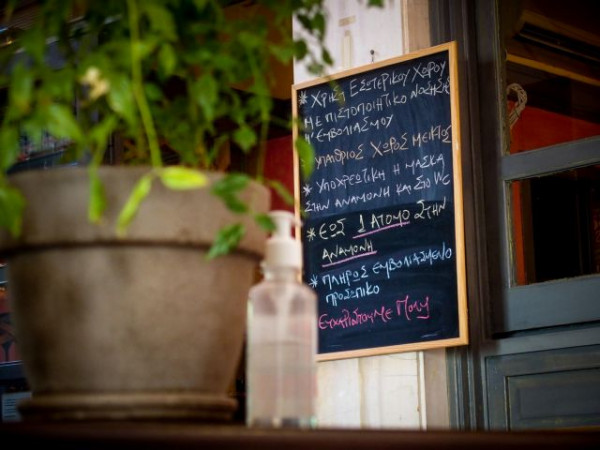 * ΧΡΗΣΗ ΕΣΩΤΕΡΙΚΟΥ ΧΩΡΟΥ
ΜΕ ΠΙΣΤΟΠΟΙΗΤΙΚΟ ΝΟΣΗΣΗΣ
Ή ΕΜΒΟΛΙΑΣΜΟΥ
* ΥΠΑΙΘΡΙΟΣ ΧΩΡΟΣ ΜΕΙΚΤΟΣ
* ΥΠΟΧΡΕΩΤΙΚΗ Η ΜΑΣΚΑ
ΣΤΗΝ ΑΝΑΜΟΝΗ ΚΑΙ ΣΤΟ WC
* ΕΩΣ 1 ΑΤΟΜΟ ΣΤΗΝ
ΑΝΑΜΟΝΗ
* ΠΛΗΡΩΣ ΕΜΒΟΛΙΑΣΜΕΝΟ
ΠΡΟΣΩΠΙΚΟ
Ευχαριστούμε Πολύ